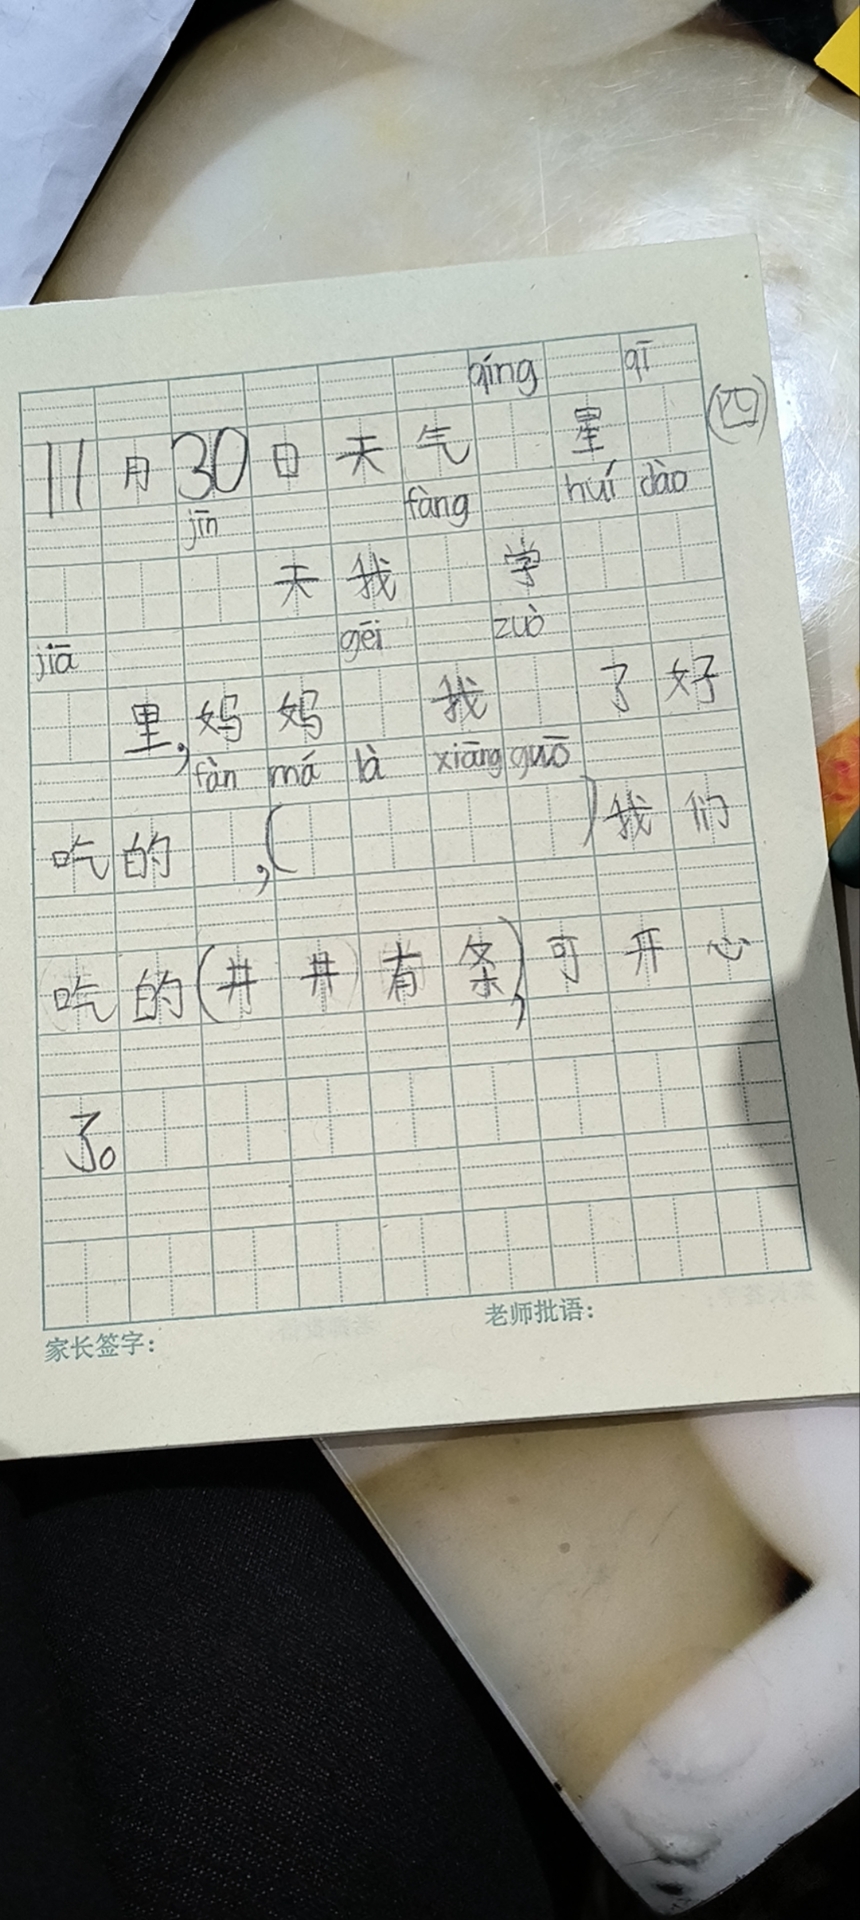 qíng qī
11月30日天气 星 (四)
jīn fàng huí dào
天我 学
jiā gěi zuò
里,妈妈 我 了好
fàn má là xiāng guō
吃的 ,( )我们
吃的(井井有条),可开心
了。
家长签字: 老师批语: